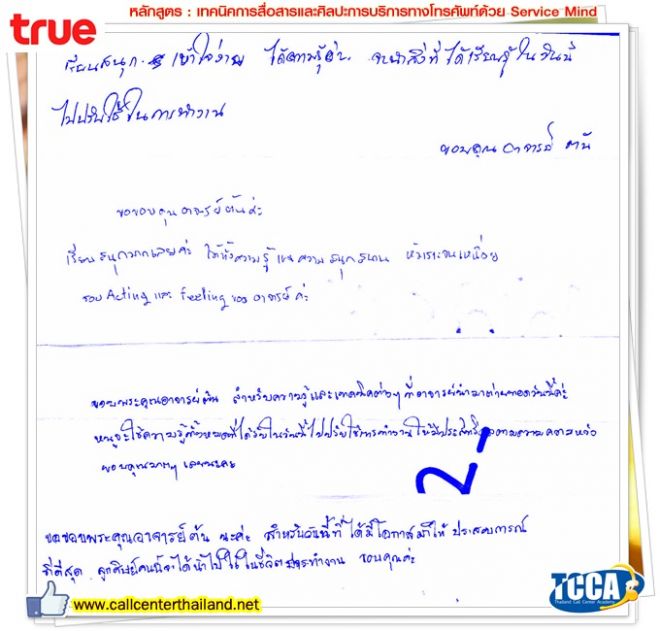 หลักสูตร : เทคนิคการสื่อสารและศิลปะการบริการทางโทรศัพท์ด้วย Service Mind
true
เรียนสนุก เข้าใจง่าย ได้ความรู้ จะนำสิ่งที่ได้เรียนรู้ในวันนี้
ไปปรับใช้ในการทำงาน
ขอบคุณ อาจารย์ ต้น
ขอขอบคุณอาจารย์ต้นค่ะ
เรียนสนุกมากเลยค่ะ ได้ทั้งความรู้และความสนุกสนาน หัวเราะจนเหนื่อย
ชอบ Acting และ feeling ของ อาจารย์ ค่ะ
ขอบพระคุณอาจารย์ต้น สำหรับความรู้และเทคนิคต่างๆ ที่อาจารย์นำมาถ่ายทอดวันนี้ค่ะ
หนูจะใช้ความรู้ทั้งหมดที่ได้รับในวันนี้ไปปรับใช้การทำงาน ให้มีประสิทธิ ตามความคาดหวัง
ขอบคุณมากๆ เลยนะคะ
ขอขอบพระคุณอาจารย์ต้น นะค่ะ สำหรับวันนี้ที่ได้มีโอกาสมาให้ ประสบการณ์
ที่ดีที่สุด ลูกศิษย์คนนี้จะได้นำไปใช้ในชีวิตประจำงาน ขอบคุณค่ะ
www.callcenterthailand.net
TCCA
Thailand Call Center Academy